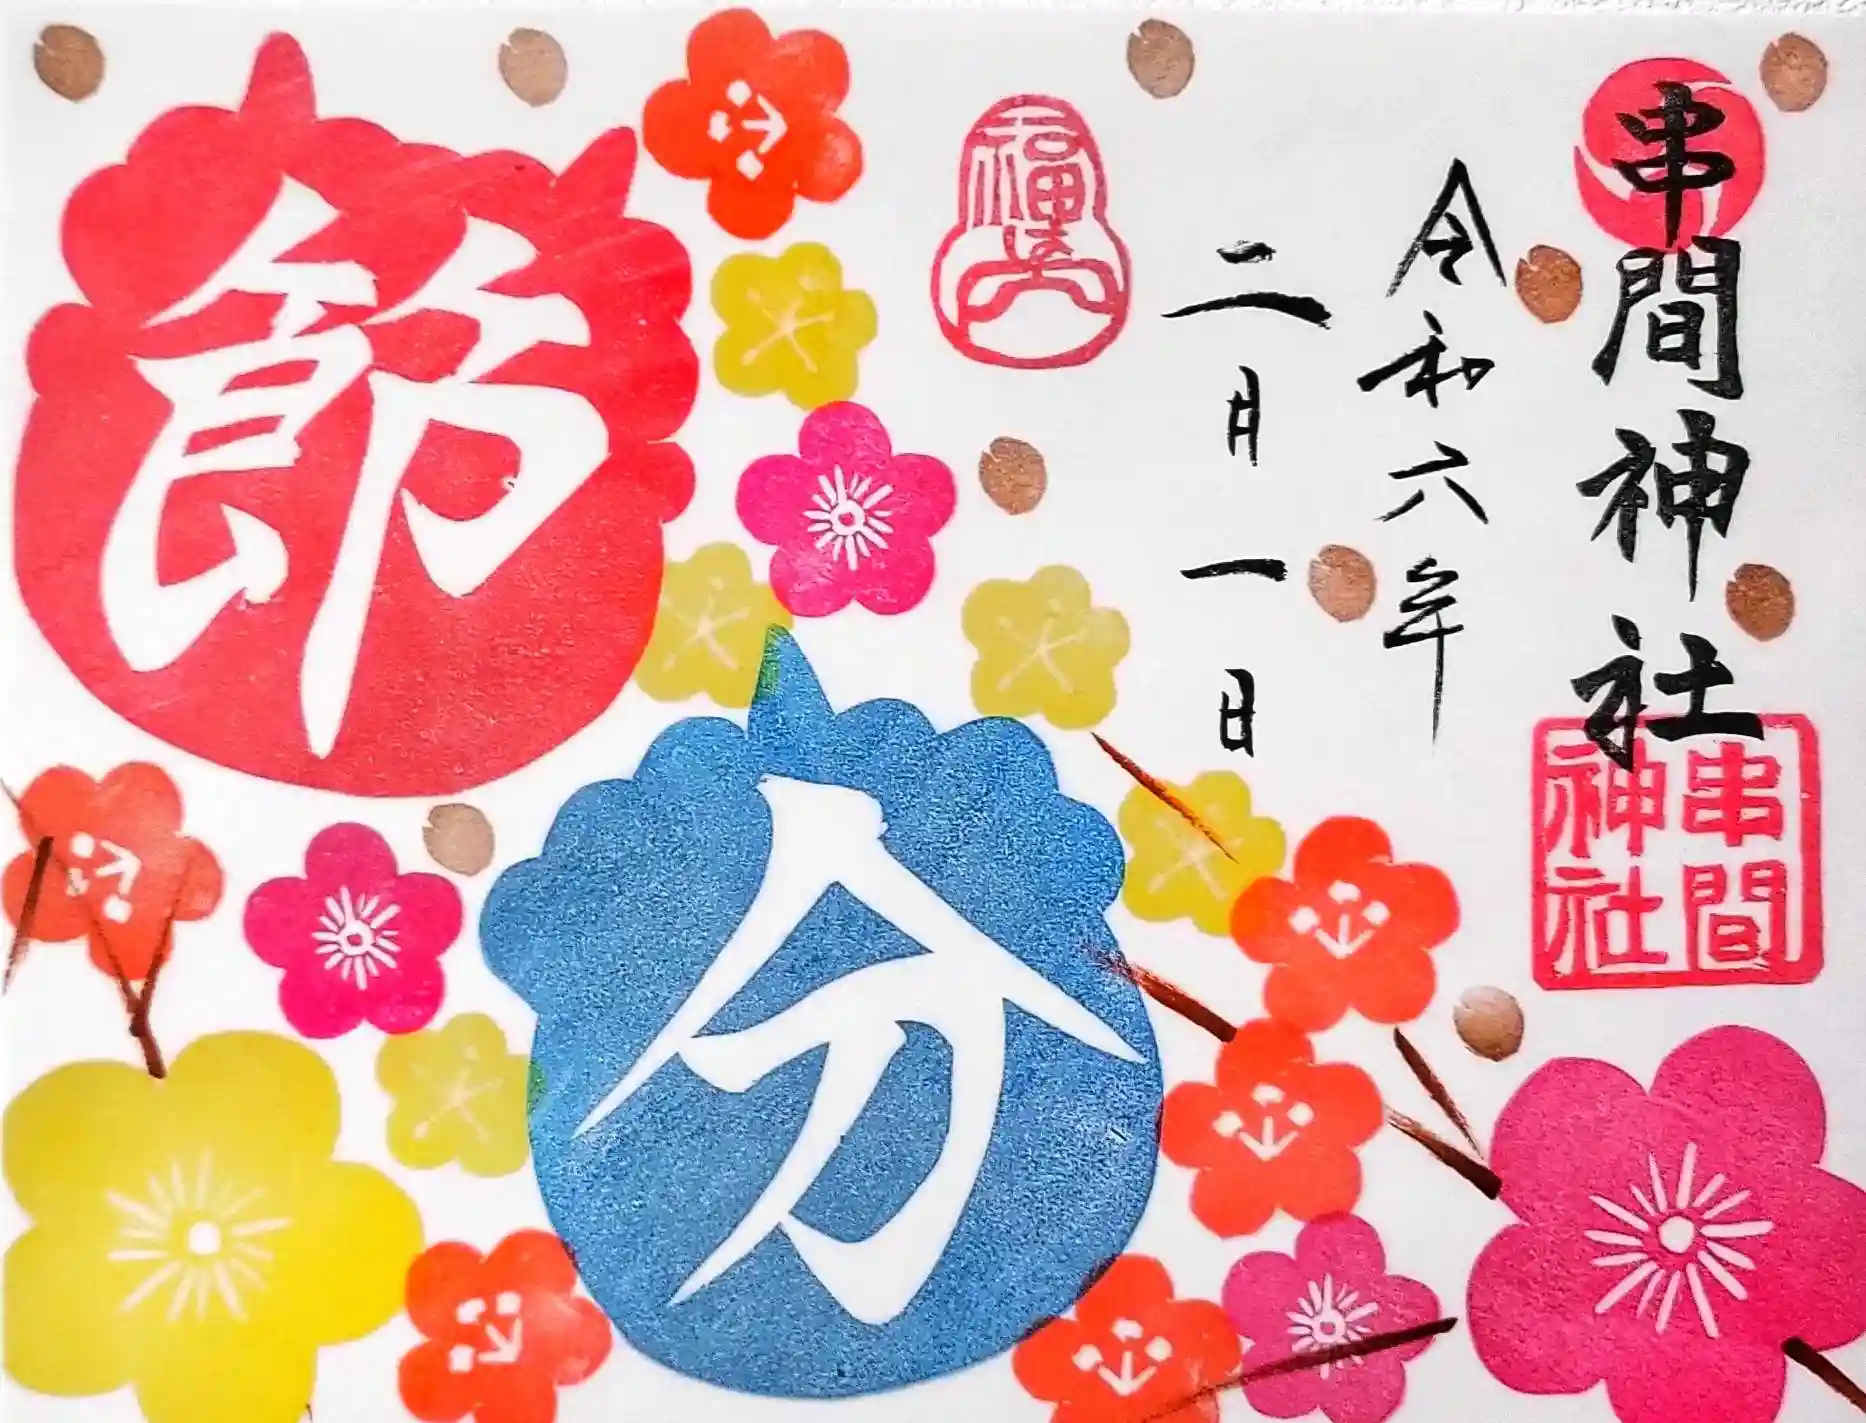 串間神社
令和六年
二月一日
節
分
福
串間
神社